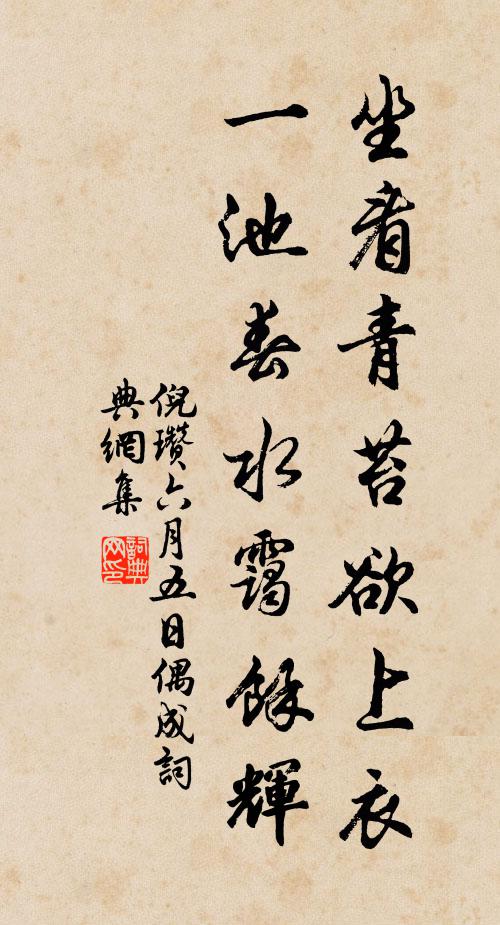 坐看青苔欲上衣
一池春水靄餘輝
倪瓚六月五日偶成詞
典網集
詞典網印